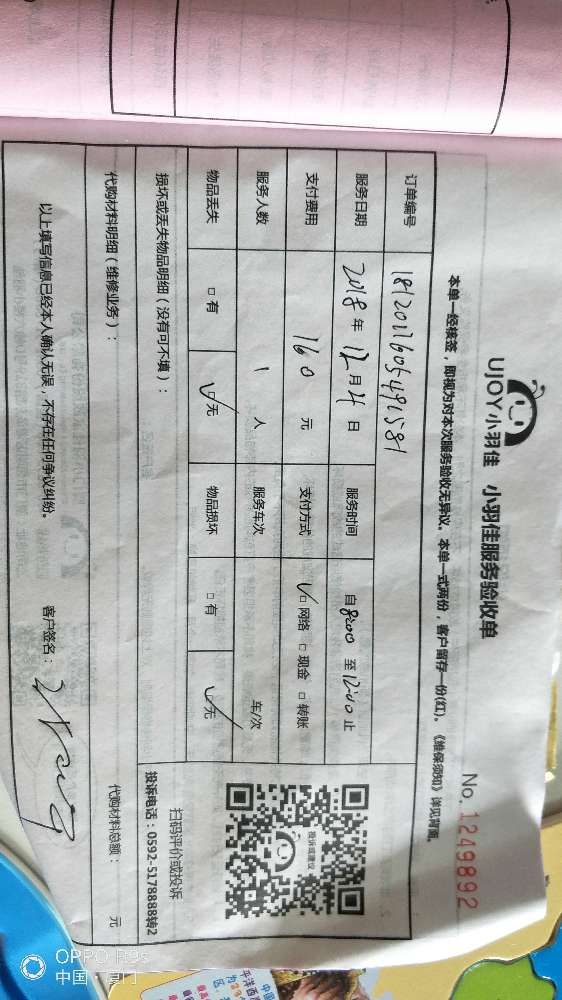 UJOY小羽佳 小羽佳服务验收单
No. 1249892
本单一经接签，即视为对本次服务验收无异议。本单一式两份，客户留存一份(红)。《维保须知》详见背面。
订单编号
服务日期 2018年12月4日 服务时间 自8:00至12:00止
支付费用 160元 支付方式 √□网络 □现金 □转账
服务人数 1人 服务车次 车/次
物品丢失 □有 √□无 物品损坏 □有 √□无
投诉或建议
扫码评价或投诉
投诉电话：0592-5178888转2
损坏或丢失物品明细（没有可不填）：
代购材料明细（维修业务）： 代购材料总额： 元
以上填写信息已经本人确认无误，不存在任何争议纠纷。 客户签名：
OPPO R9s
中国·厦门